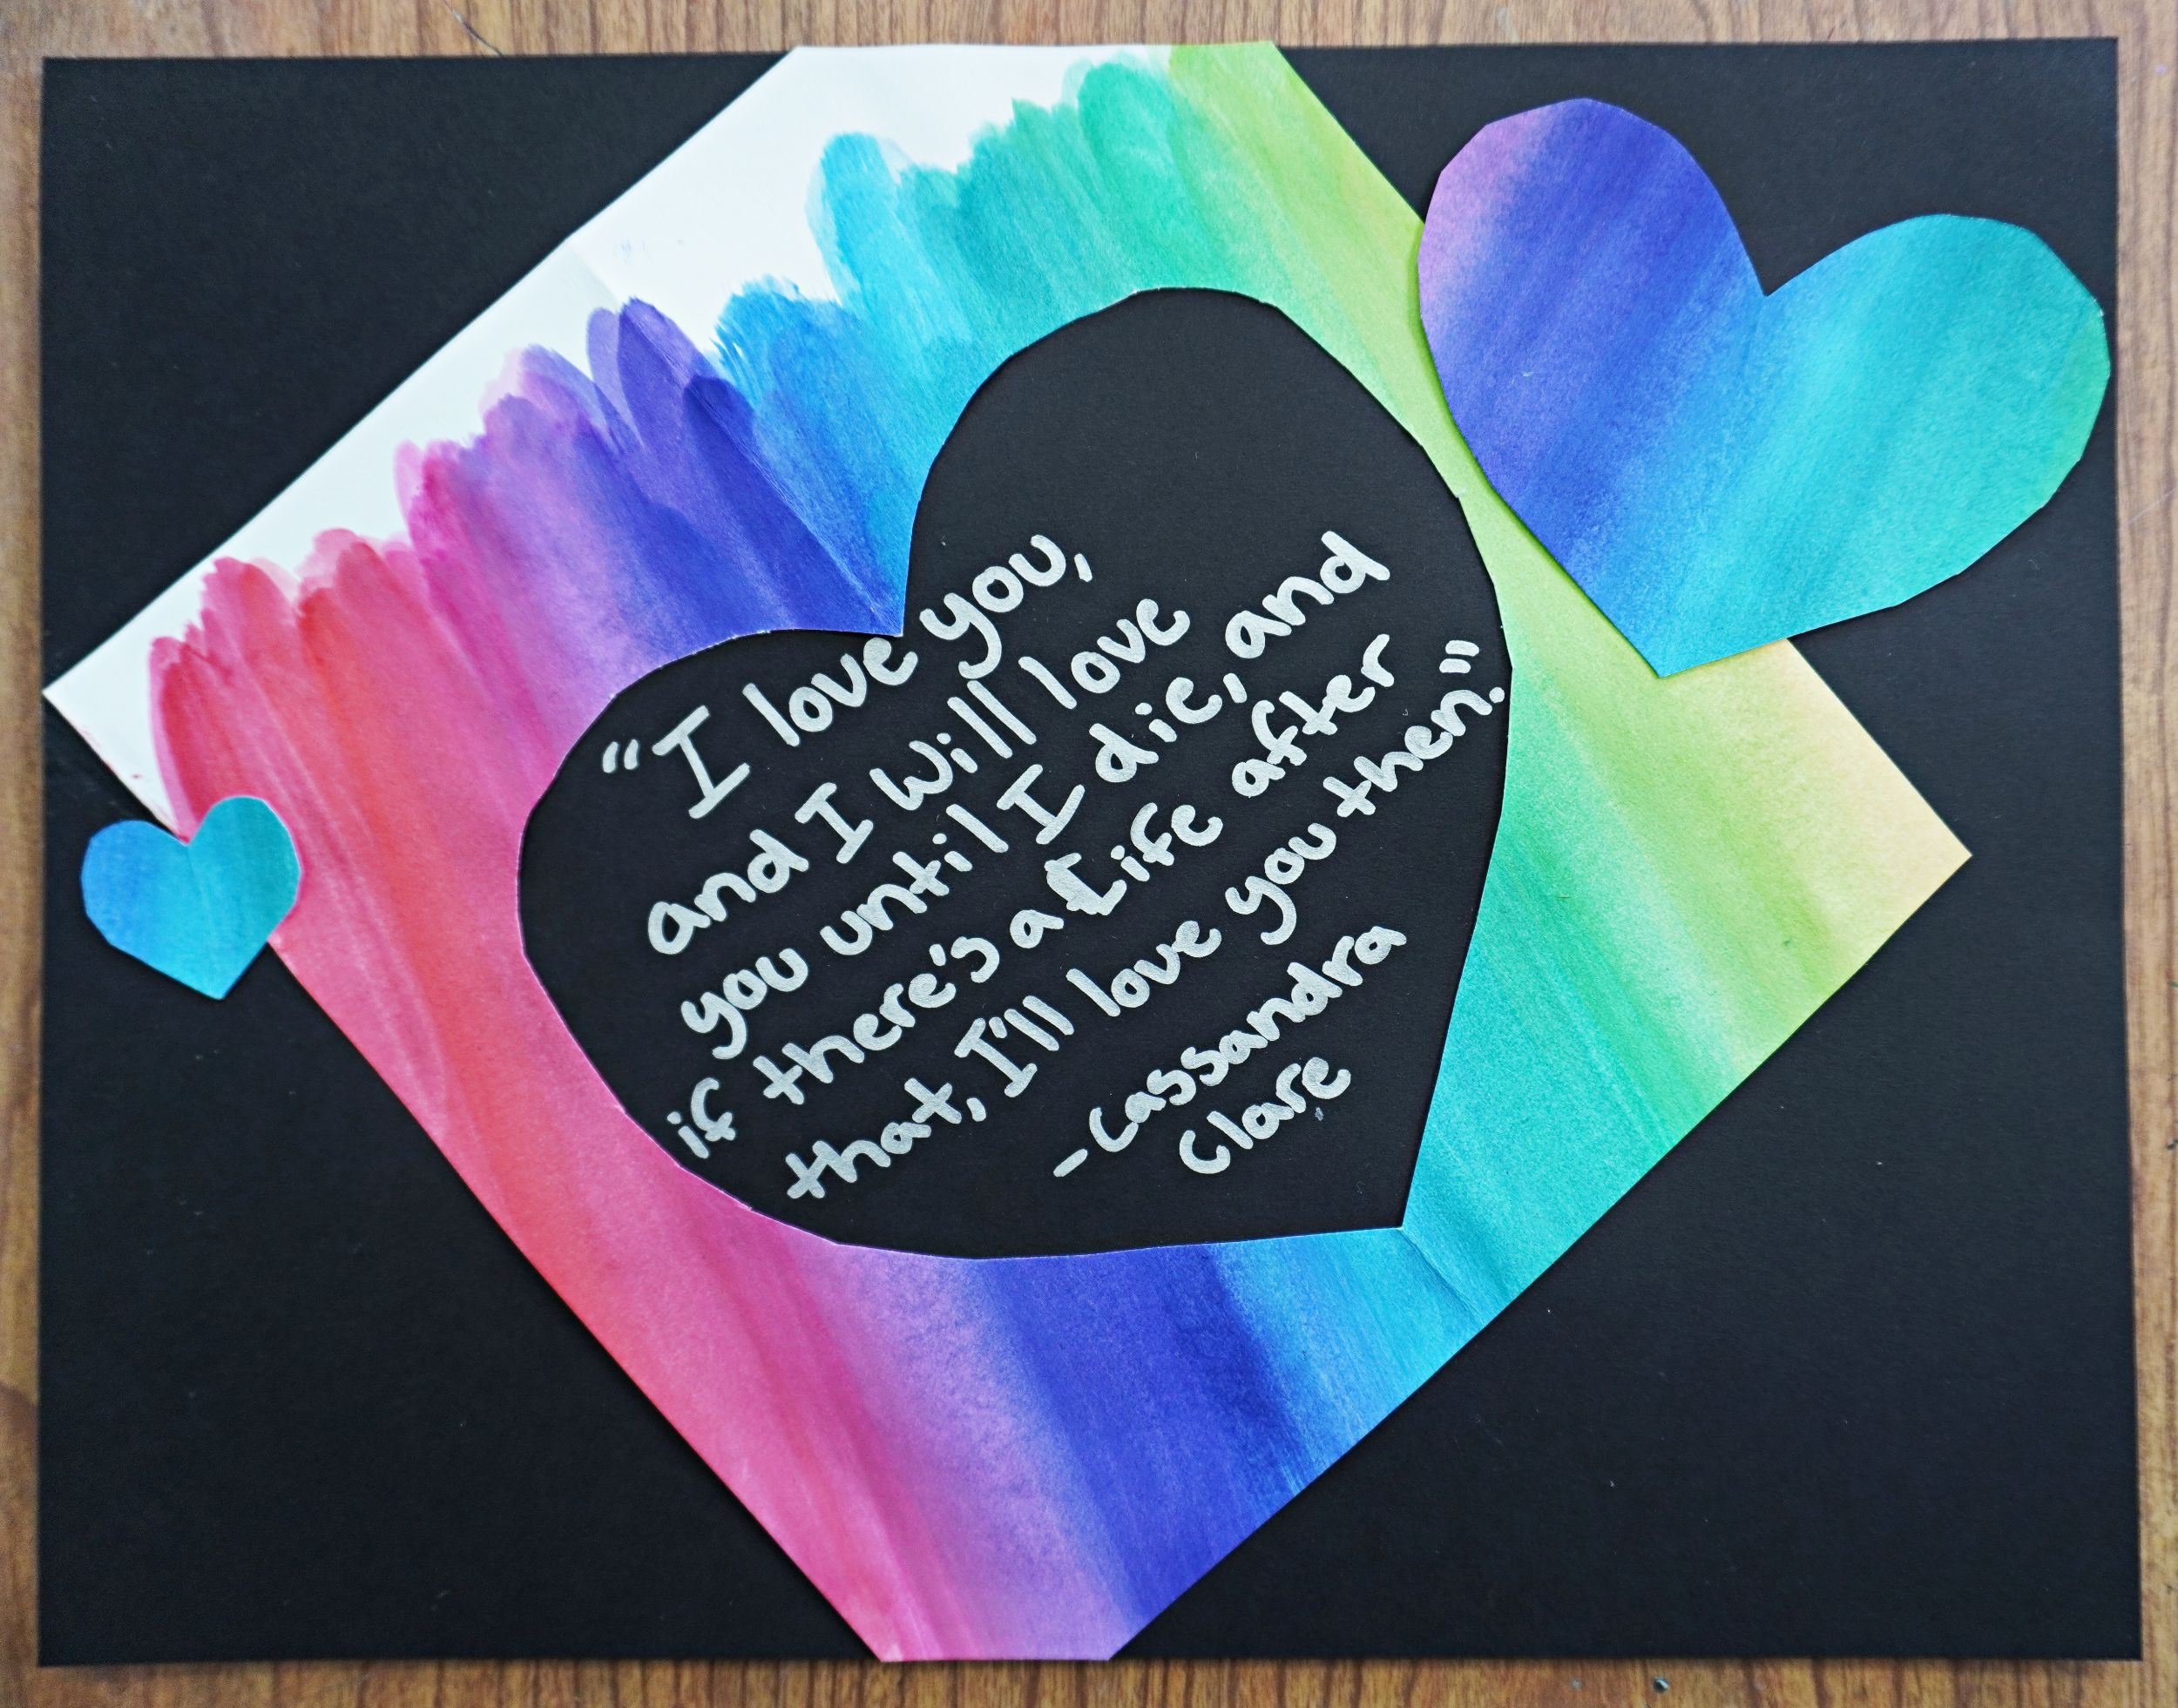 “I love you,
and I will love
you until I die, and
if there's a Life after
that, I'll love you then.”
-Cassandra
Clare